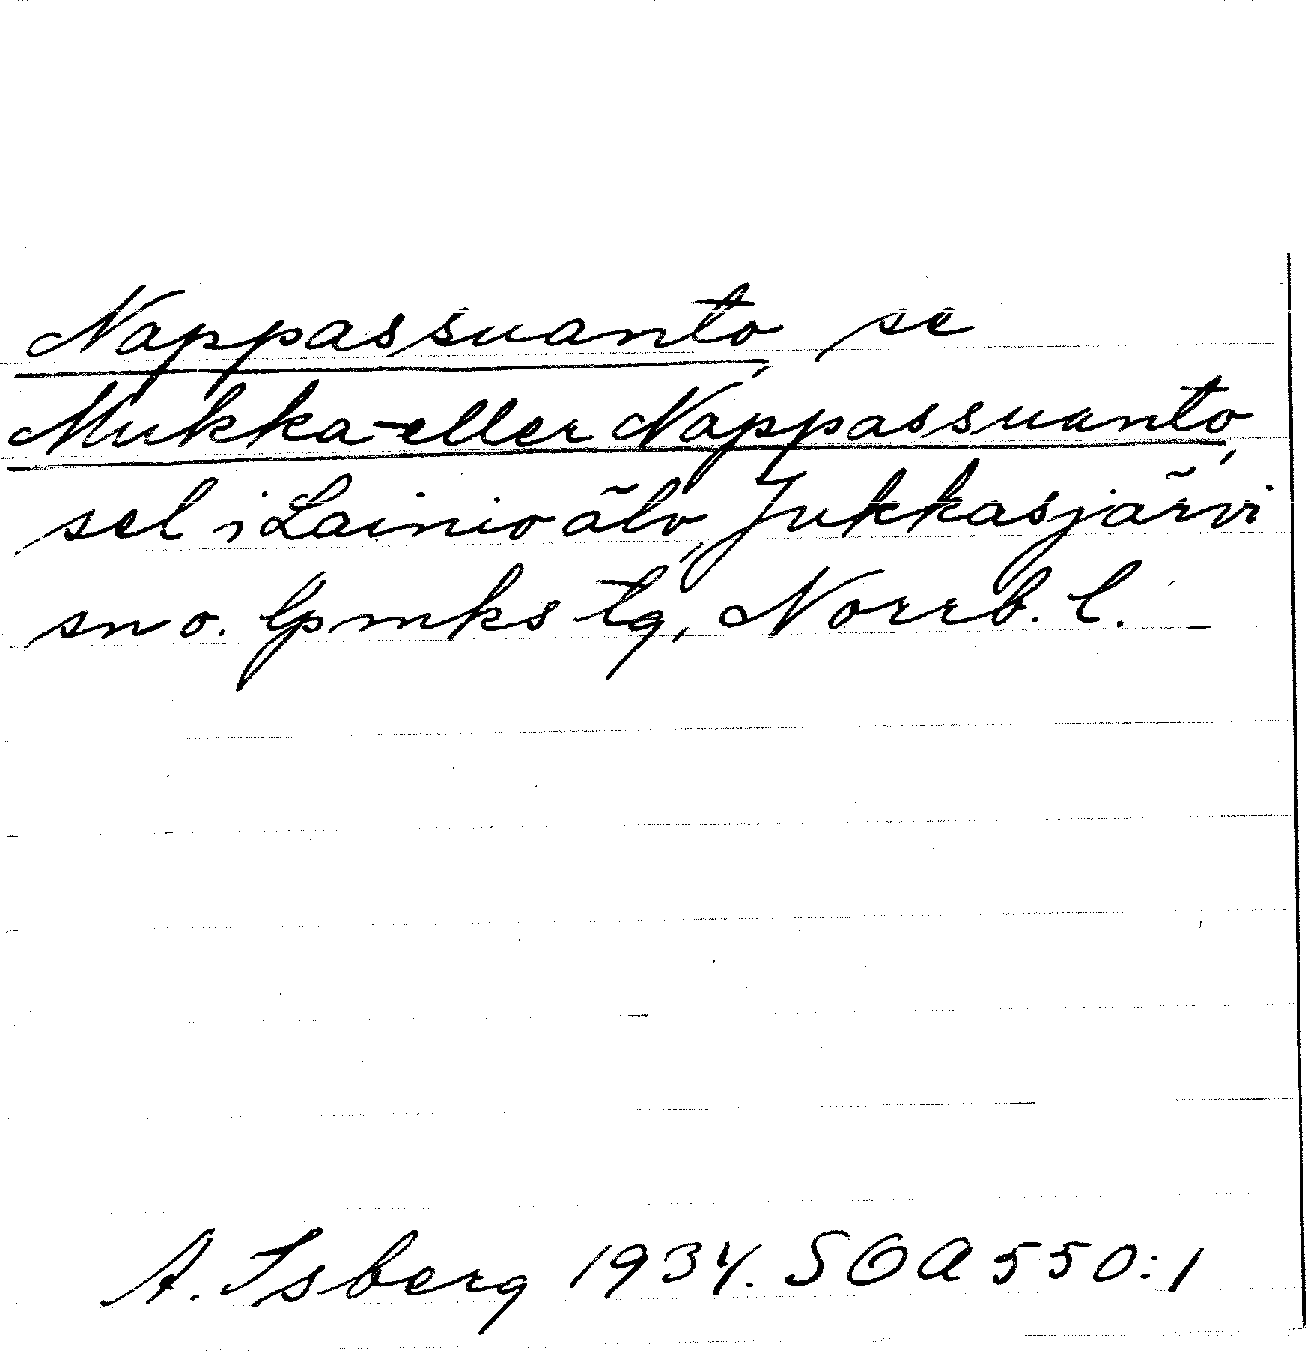 Nappassuanto, se
Mukka- eller Nappassuanto,
sel i Lainio älv, Jukkasjärvi
sn o. lpmks tg, Norrb. l.
A. Isberg 1934. SOA 550:1